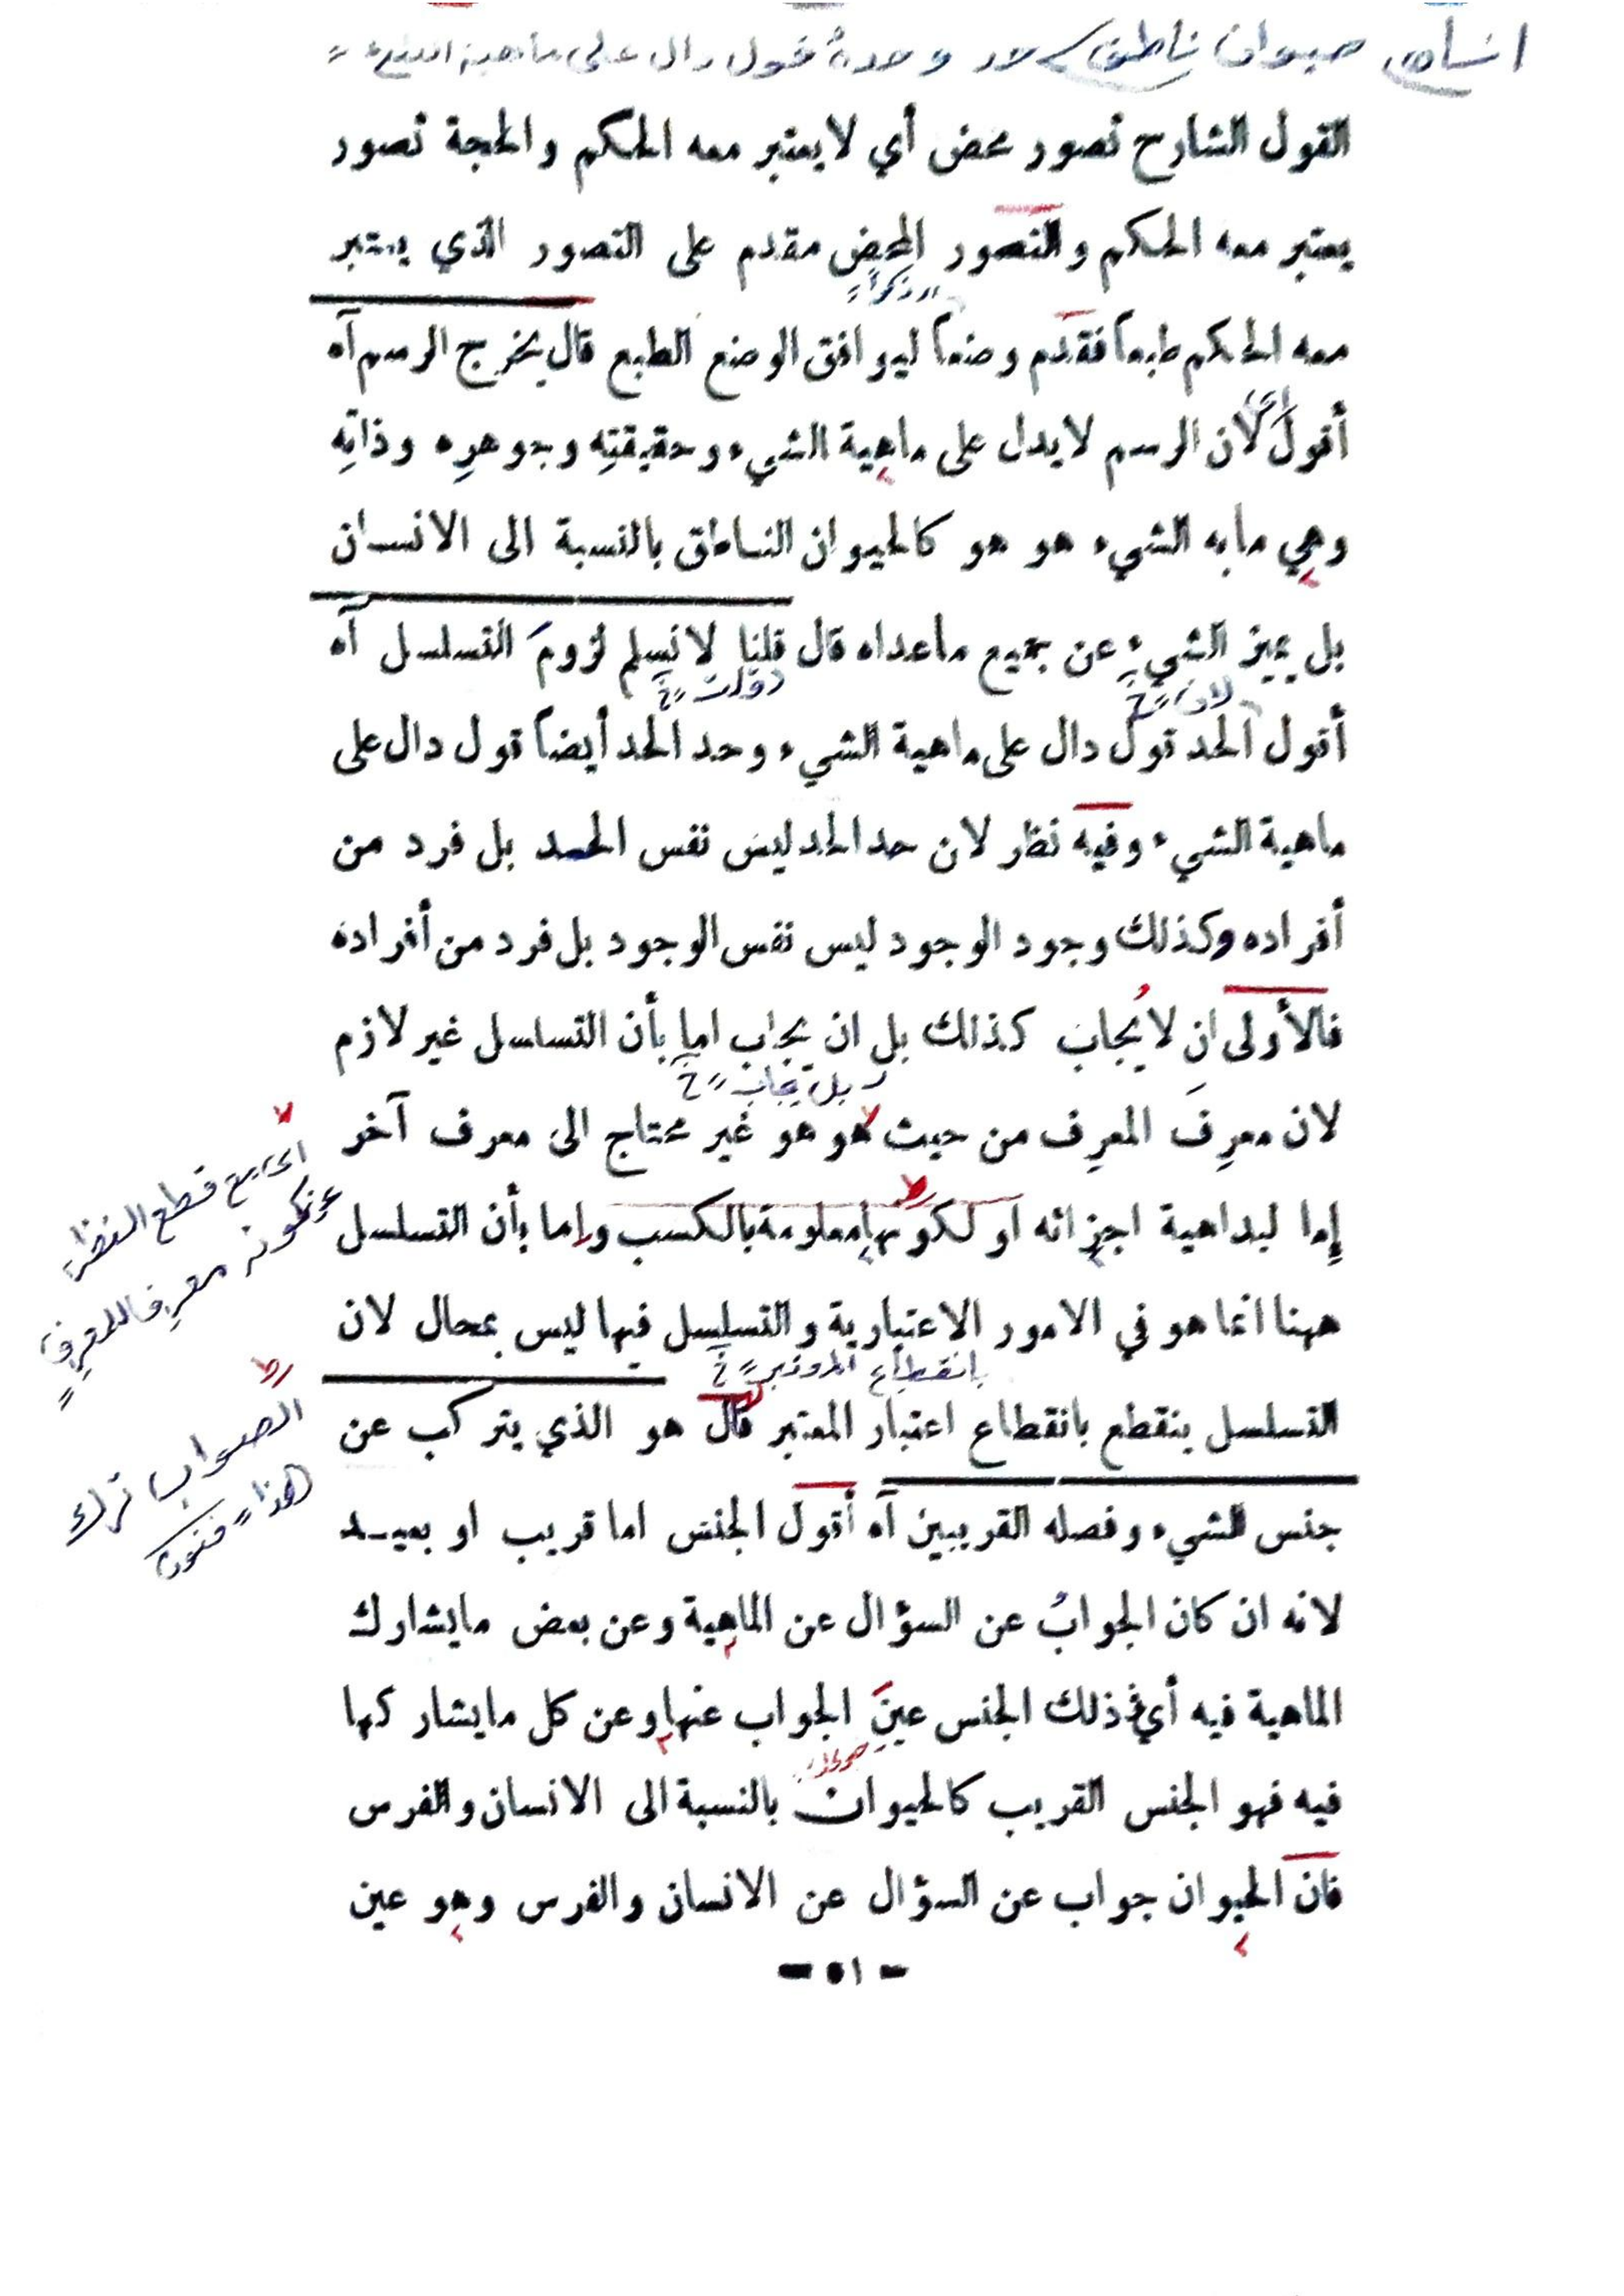 انسان حيوان ناطق حد وحده قول دال على ماهية الشيء
القول الشارح تصور محض أي لا يعتبر معه الحكم والحجة تصور
يعتبر معه الحكم والتصور المحض مقدم على التصور الذي يعتبر
معه الحكم طبعاً فقدم وضعاً ليوافق الوضع الطبع قال يخرج الرسم آه
أقول لان الرسم لا يدل على ماهية الشيء وحقيقتِه وجوهرِه وذاتِه
وهي ما به الشيء هو هو كالحيوان الناطق بالنسبة الى الانسان
بل يميز الشيء عن جميع ماعداه قال قلنا لا نسلم لزومَ التسلسل آه
لان خ
أقول الحد قول دال على ماهية الشيء وحد الحد أيضاً قول دال على
ماهية الشيء وفيه نظر لان حد الحد ليس نفس الحد بل فرد من
أفراده وكذلك وجود الوجود ليس نفس الوجود بل فرد من أفراده
فالأولى ان لا يُجابَ كذلك بل ان يجاب اما بأن التسلسل غير لازم
بل يجاب خ
لان معرِفَ المعرِف من حيث هو هو غير محتاج الى معرف آخر
اى مع قطع النظر
عن كونه معرفا للمعرف
إما لبداهية اجزائه او لكونها معلومة بالكسب وإما بأن التسلسل
ههنا انما هو في الامور الاعتبارية والتسلسل فيها ليس بمحال لان
بانقطاع خ
التسلسل ينقطع بانقطاع اعتبار المعتبر قال هو الذي يتركب عن
الصواب ترك
هذا
جنس الشيء وفصله القريبين آه أقول الجنس اما قريب او بعيد
لانه ان كان الجوابُ عن السؤال عن الماهية وعن بعض ما يشارك
الماهية فيه أي في ذلك الجنس عينَ الجواب عنها وعن كل ما يشاركها
فيه فهو الجنس القريب كالحيوان بالنسبة الى الانسان والفرس
فان الحيوان جواب عن السؤال عن الانسان والفرس وهو عين
- ٥١ -